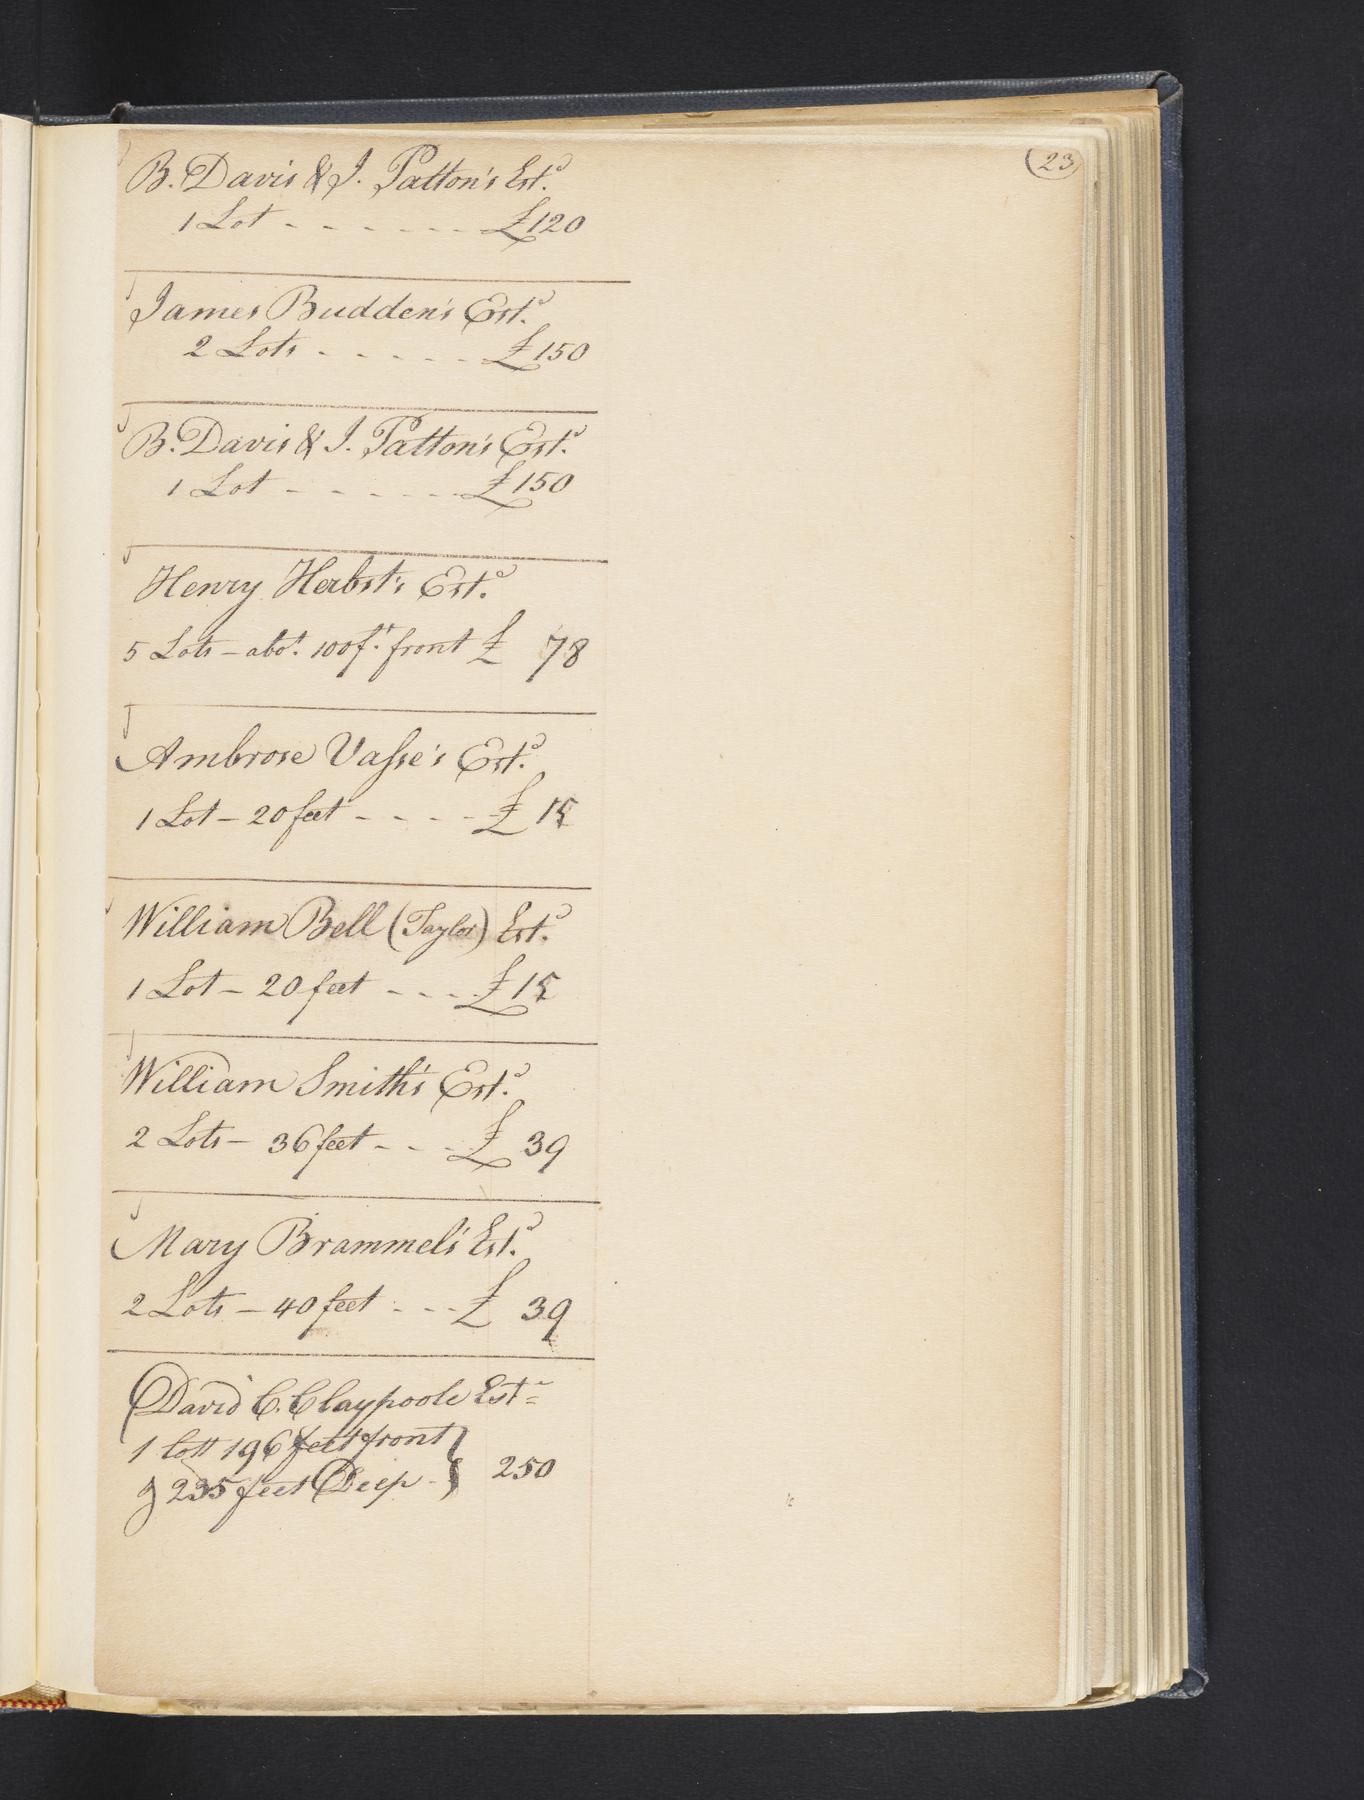 (23)
B. Davis & J. Patton's Est.ᵈ
1 Lot - - - - - - - £120
James Budden's Est.ᵈ
2 Lots - - - - - - £150
B. Davis & J. Patton's Est.ᵈ
1 Lot - - - - - - £150
Henry Herbst's Est.ᵈ
5 Lots – abo.ᵗ 100 f.ᵗ front £ 78
Ambrose Vaſse's Est.ᵈ
1 Lot – 20 feet - - - - £ 15
William Bell (Taylor) Est.ᵈ
1 Lot – 20 feet - - - - £ 15
William Smith's Est.ᵈ
2 Lots – 36 feet - - - £ 39
Mary Brammel's Est.ᵈ
2 Lots – 40 feet - - - £ 39
David C. Claypoole Est
1 lott 196 feet front
& 235 feet Deep - } 250